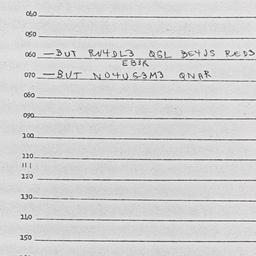 060
050
060 —BUT RU4DL3 QGL BE4JS RED3
EB3R
070 —BUT NO4US3M3 QNAR
080
090
100
110
111
120
130
140
150